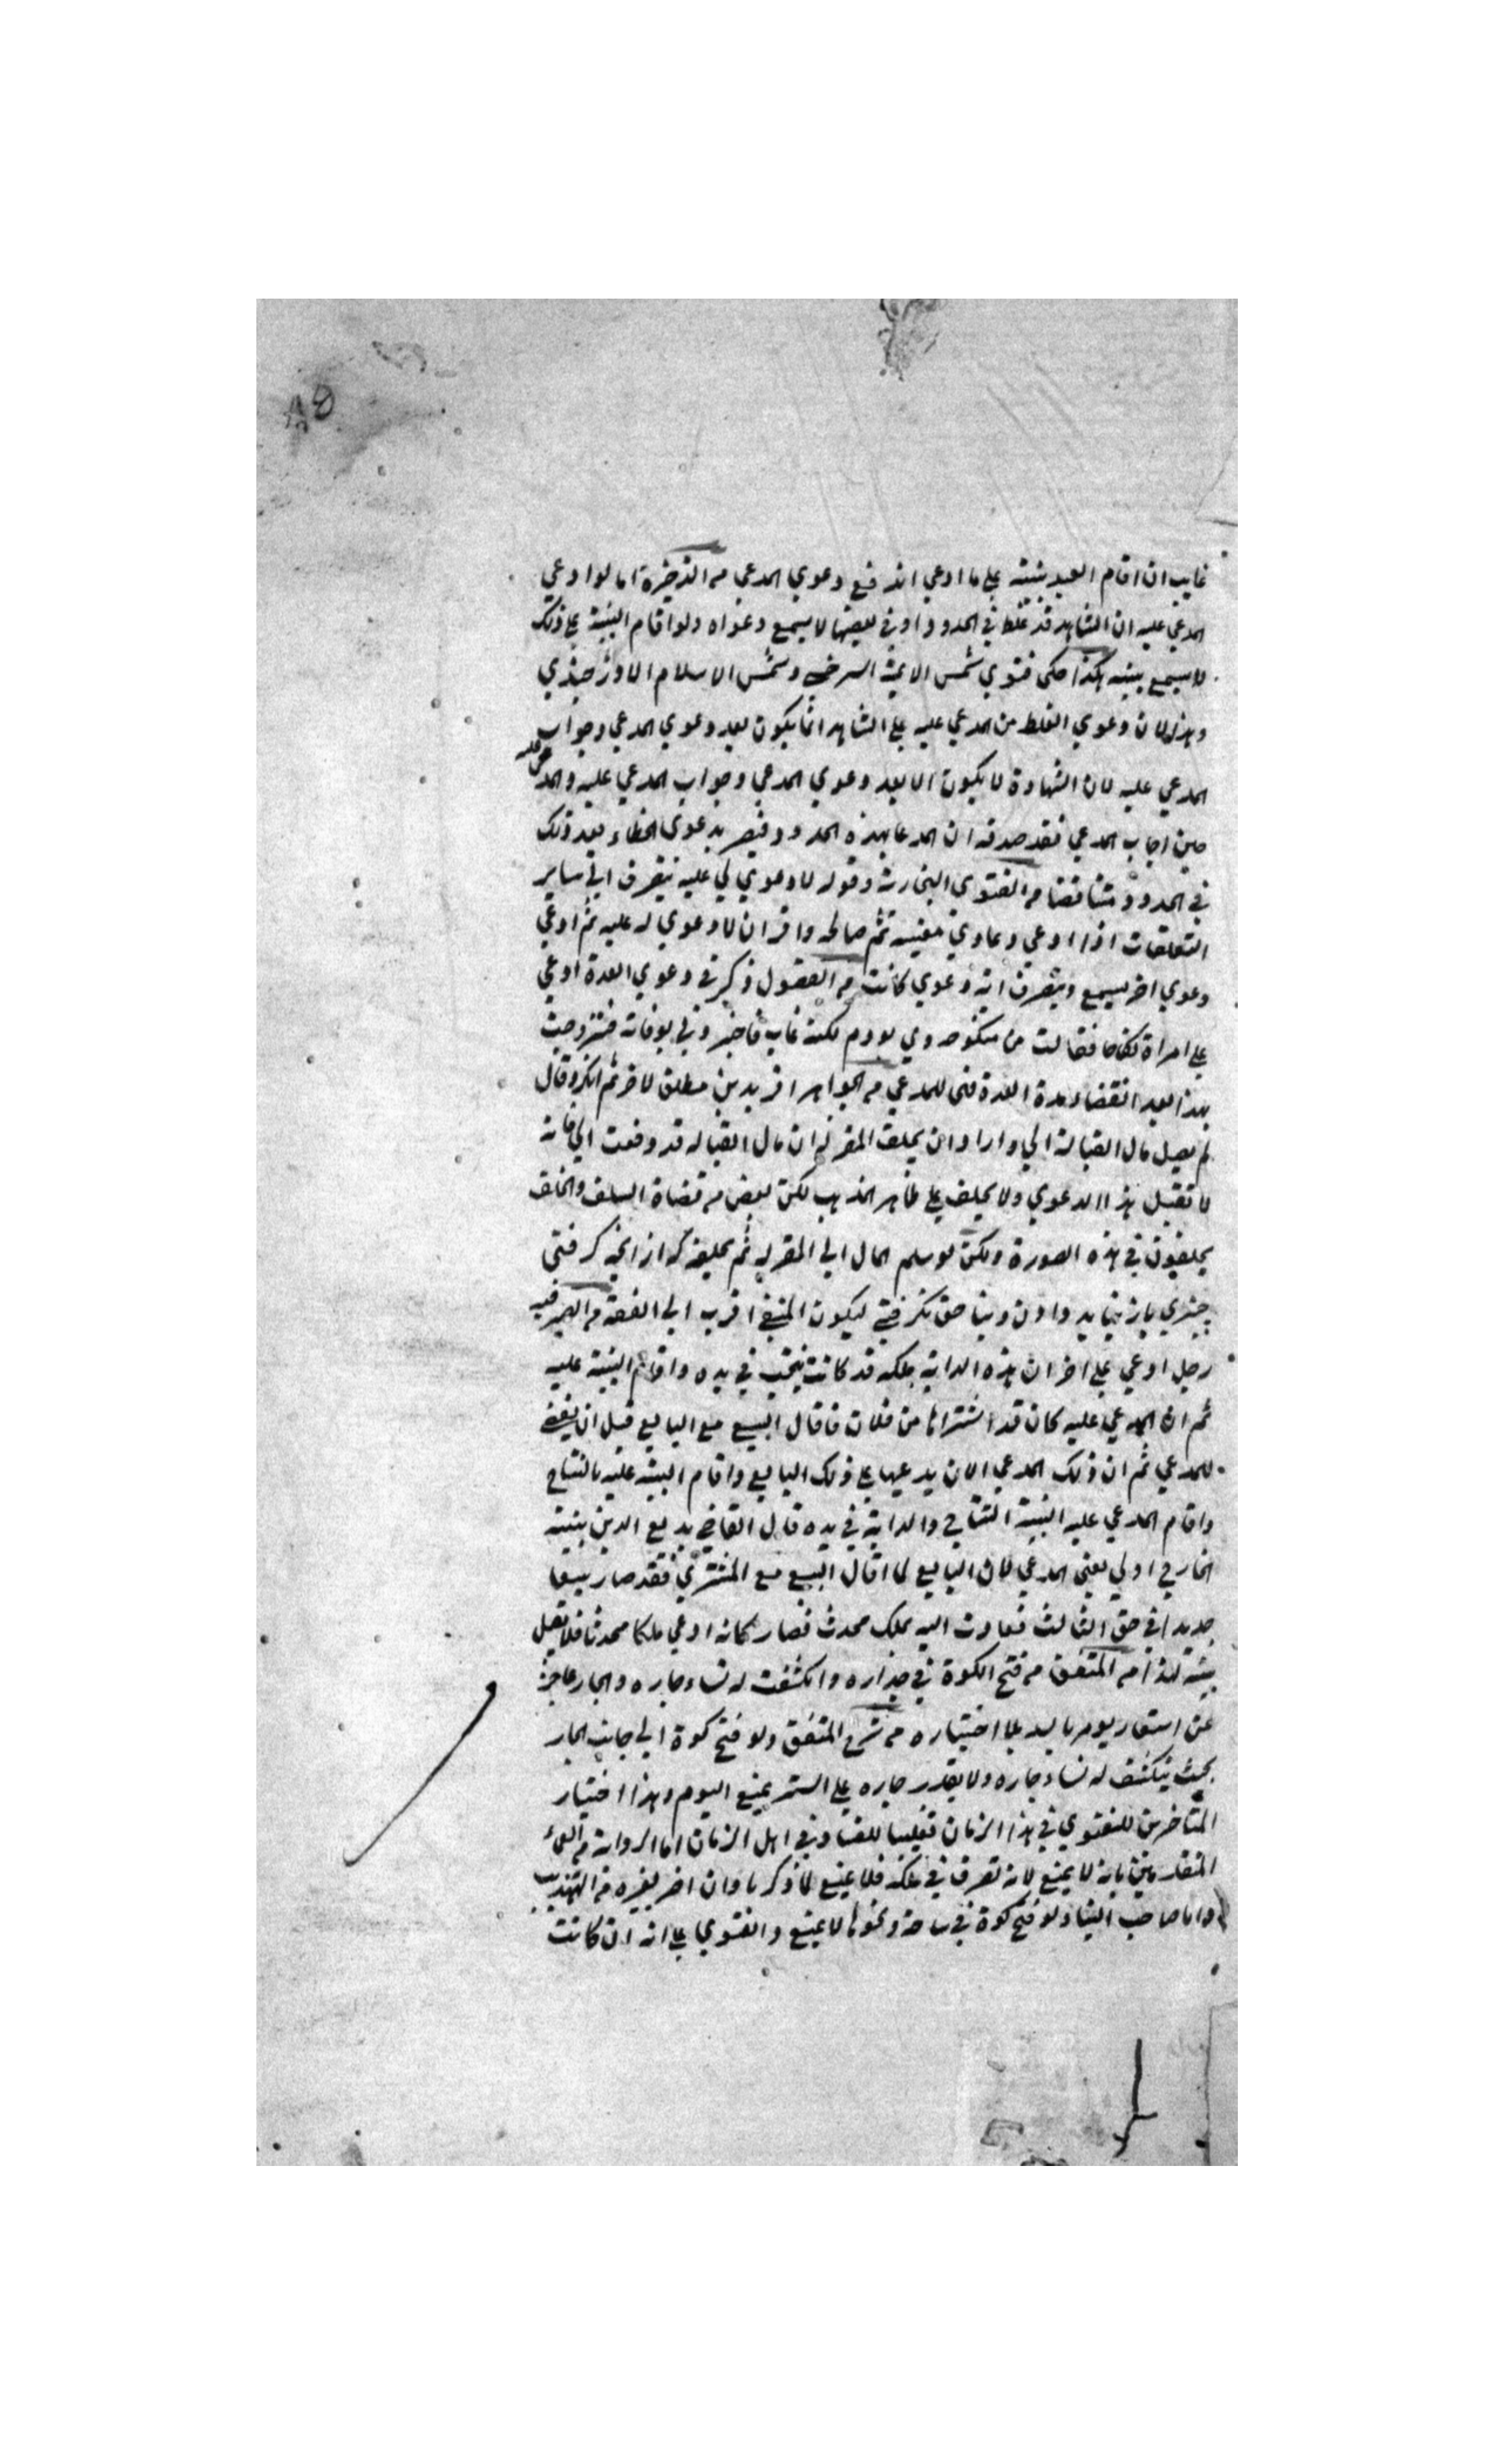 غايب ان اقام العبد بينته على ما ادعي اندفع دعوي المدعي من الذخيرة اما لو ادعي
المدعي عليه ان الشاهد قد غلط في الحدود او في بعضها لا يسمع دعواه ولو اقام البينة على ذلك
لا يسمع بينته هكذا حكى فتوي شمس الايمة السرخسي وشمس الاسلام الاوزجندي
وهذا لان دعوي الغلط من المدعي عليه على الشاهد انما يكون بعد دعوي المدعي وجواب
المدعي عليه لان الشهادة لا يكون الا بعد دعوي المدعي وجواب المدعي عليه والمدعى عليه
حين اجاب المدعي فقد صدقه ان المدعا بهذه الحدود فيصير بدعوى الخطاء بعد ذلك
في الحدود متناقضا من الفتوى البخارية وقوله لا دعوي لي عليه ينصرف الي ساير
التعلقات اذا ادعي دعاوي معينه ثم صالحه واقر ان لا دعوي له عليه ثم ادعي
دعوي اخر يسمع وينصرف اية دعوي كانت من الفصول ذكر في دعوي العدة ادعي
على امراة نكاحا فقالت من منكوحه وي بودم لكنه غايب فاخبر وني بوفاته فتزوجت
بهذا بعد انقضاء مدة العدة فهى للمدعي من الجواهر اقر بدين مطلق لاخر ثم انكر وقال
لم يصل مال القبالة الي واراد ان يحلف المقر له ان مال القباله قد دفعت الي فانه
لا تقبل هذا الدعوي ولا يحلف على ظاهر المذهب لكن بعض من قضاة السلف والخلف
يحلفون في هذه الصورة ولكن لو سلم المال الي المقر له ثم يحلفه كه از انچه گرفتى
چيزي باز نبايد دادن وبنا حق نگرفتي ليكون المنفي اقرب الي الفقه من الصيرفيه
رجل ادعي على اخر ان هذه الدابة ملكه قد كانت نتجت في يده واقام البينة عليه
ثم ان المدعي عليه كان قد اشتراها من فلان فاقال البيع مع البايع قبل ان يقضى
للمدعي ثم ان ذلك المدعي الان يدعيها على ذلك البايع واقام البينه عليه بالنتاج
واقام المدعي عليه البينة النتاج والدابة في يده قال القاضي بديع الدين بينته
الخارج اولي يعنى المدعي لان البايع لما اقال البيع مع المشتري فقد صار بيعا
جديدا في حق الثالث فعادت اليه بملك محدث فصار كانه ادعي ملكا محدثا فلا يقبل
بينته لهذا من المتفق من فتح الكوة في جداره وانكشفت له نساء جاره والجار عاجز
عن استتار يومر بالسد على اختياره من شرح المتفق ولو فتح كوة الي جانب الجار
بحيث ينكشف له نساء جاره ولا يقدر جاره على الستر يمنع اليوم وهذا اختيار
المتاخرين للفتوي في هذا الزمان تغليبا للفساد في اهل الزمان اما الرواية من العلماء
المتقدمين بانه لا يمنع لانه تصرف في ملكه فلا يمنع لما ذكرنا وان اضر بغيره من التهذيب
واما صاحب البناء ولو فتح كوة في ساحة ونحوها لا يمنع والفتوي على انه ان كانت